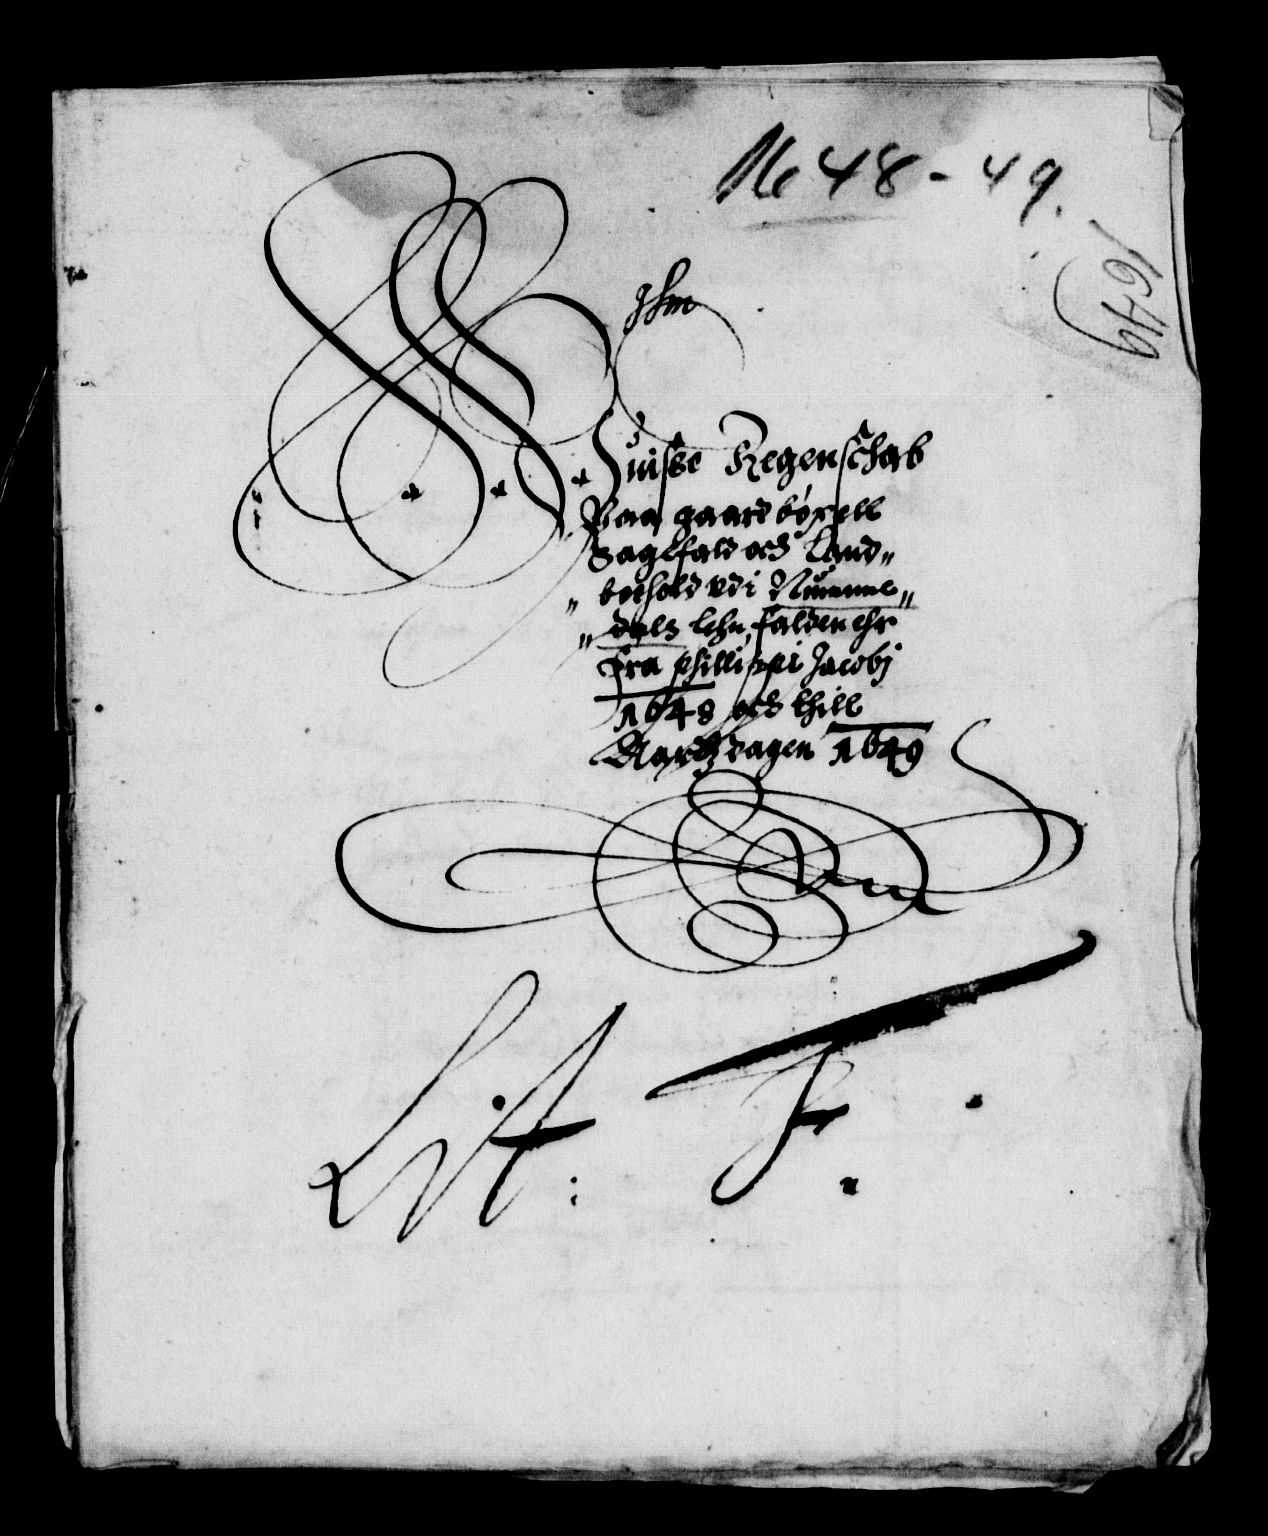 1648-49.
1649
Ihm
Wuisse Regenschab
Paa gaard böxell
Sagefald och Land„
„ bohold udi Numme„
„ dals lehn, falden ehr
fra phillippi Jacobj
1648 och thill
Aarsdagen 1649
Lit: F.